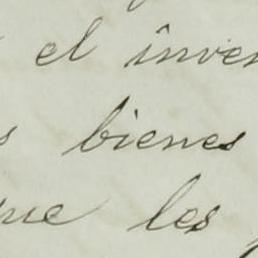 el inven
s bienes
que les